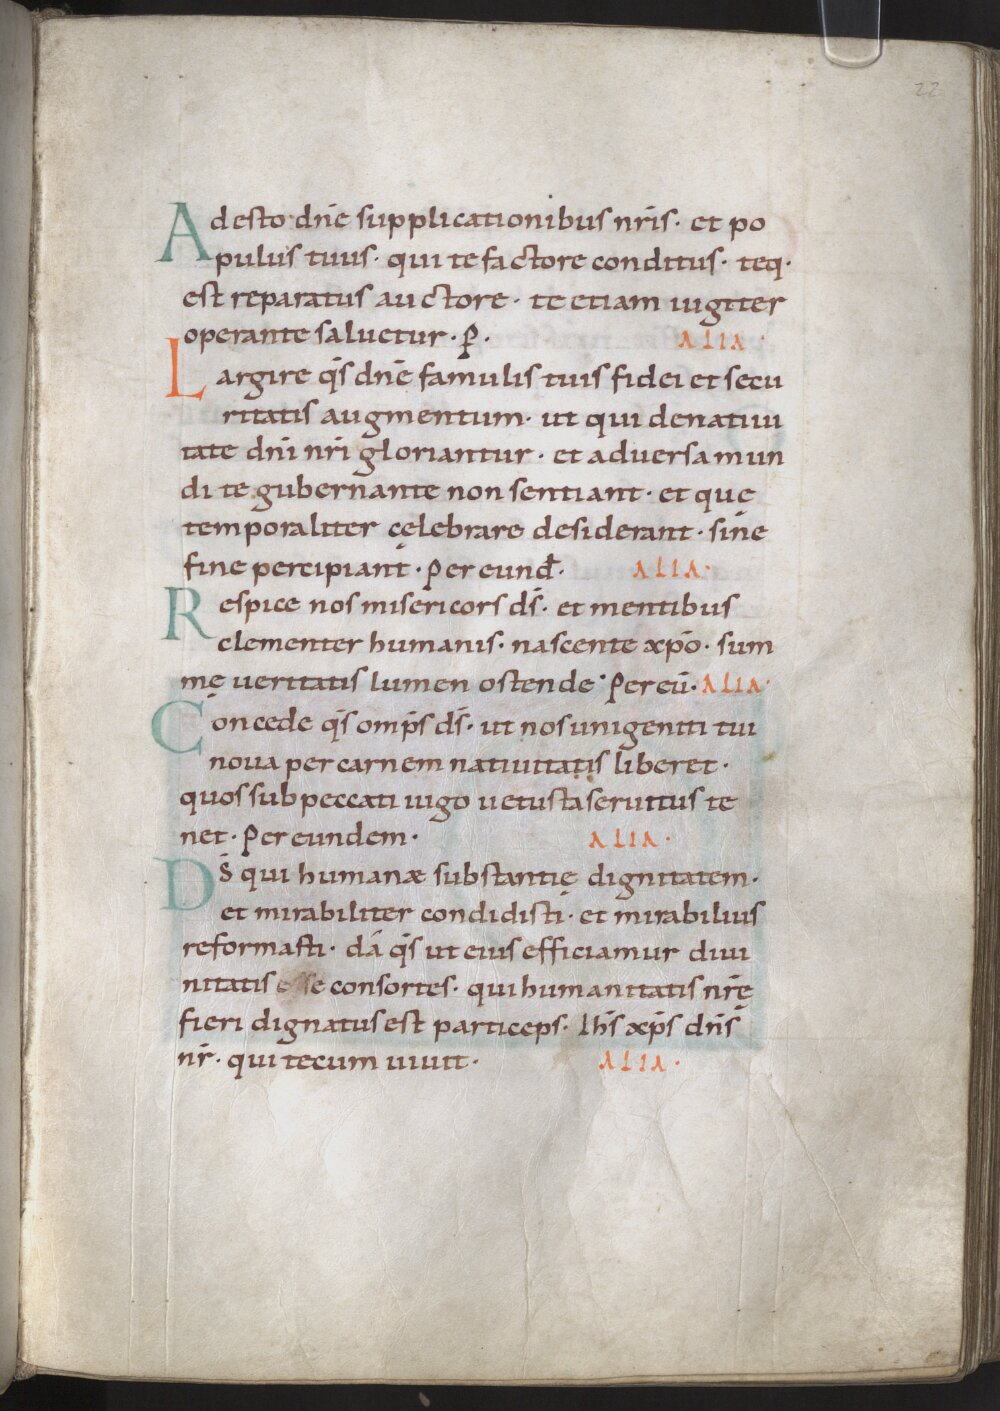 22
Adesto dn̄e supplicationibus nr̄is · et po
pulus tuus · qui te factore conditus · teq·
est reparatus auctore · te etiam iugiter
operante saluetur · P̱ · ALIA ·
Largire q̄s dn̄e famulis tuis fidei et secu
ritatis augmentum · ut qui denatiui
tate dn̄i nr̄i gloriantur · et aduersa mun
di te gubernante non sentiant · et quę
temporaliter cęlebrare desiderant · sine
fine percipiant · Per eund̄ · ALIA ·
Respice nos misericors ds̄ · et mentibus
clementer humanis · nascente xp̄o · sum
mę ueritatis lumen ostende · Per eū · ALIA ·
Concede q̄s omp̄s ds̄ · ut nos unigeniti tui
noua per carnem natiuitatis liberet ·
quos sub peccati iugo uetusta seruitus te
net · Per eundem · ALIA ·
Ds̄ qui humanæ substantię dignitatem ·
et mirabiliter condidisti · et mirabilius
reformasti · dā q̄s ut eius efficiamur diui
nitatis esse consortes · qui humanitatis nr̄ę
fieri dignatus est particeps · Ihs̄ xp̄s dn̄s
nr̄ · qui tecum uiuit · ALIA ·